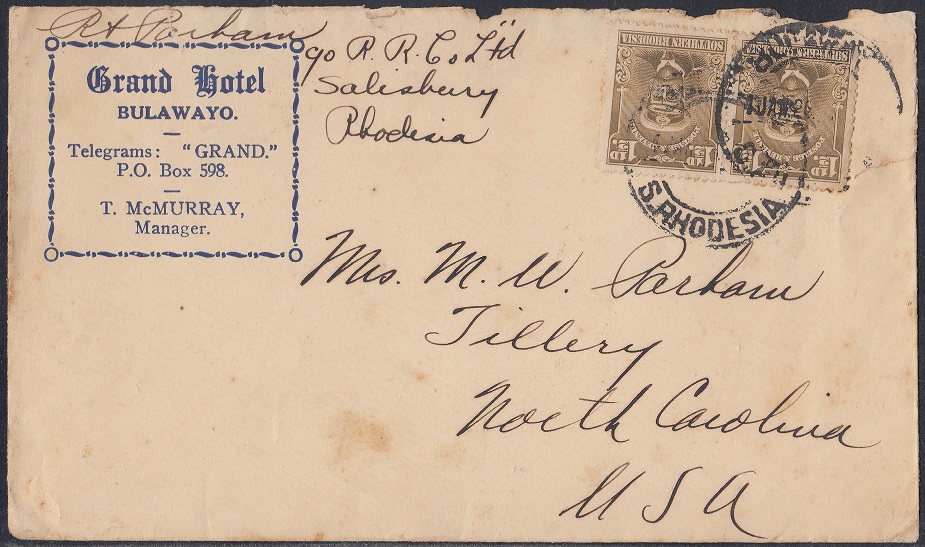 Rt Parham
Grand Hotel
BULAWAYO.
Telegrams: "GRAND."
P.O. Box 598.
T. McMURRAY,
Manager.
c/o R. R. Co Ltd
Salisbury
Rhodesia
SOUTHERN RHODESIA
1½D
SOUTHERN RHODESIA
1½D
S. RHODESIA
Mrs. M. W. Parham
Tillery
North Carolina
U S A